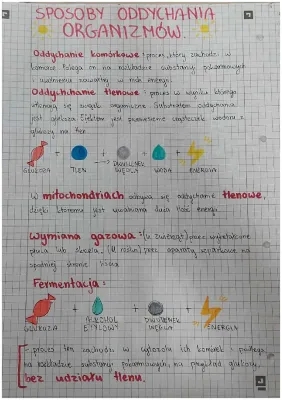 SPOSOBY ODDYCHANIA
ORGANIZMÓW.
Oddychanie komórkowe: proces, który zachodzi w
komórce. Polega on na rozkładzie substancji pokarmowych
i uwolnieniu zawartej w nich energii.
Oddychanie tlenowe: proces w wyniku którego
utleniają się związki organiczne. Substratem oddychania
jest glukoza. Efektem jest przeniesienie cząsteczek wodoru z
glukozy na tlen.
+ → + +
GLUKOZA TLEN DWUTLENEK WODA ENERGIA
WĘGLA
W mitochondriach odbywa się oddychanie tlenowe,
dzięki któremu jest uwalniana duża ilość energii.
Wymiana gazowa: (u zwierząt) przez wyspecjalizowane
płuca lub skrzela, (u roślin) przez aparaty szparkowe na
spodniej stronie liścia.
Fermentacja:
+ + +
GLUKOZA ALKOHOL DWUTLENEK ENERGIA
ETYLOWY WĘGLA
proces ten zachodzi w cytozolu ich komórek i polega
na rozkładzie substancji pokarmowych, na przykład glukozy,
bez udziału tlenu.